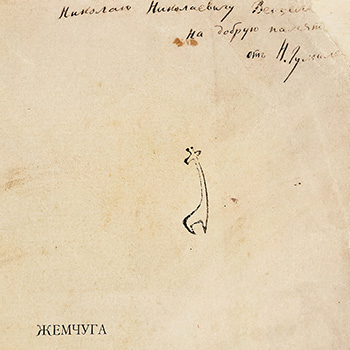 Николаю Николаевичу
на добрую память
отъ Н. Гумиле
ЖЕМЧУГА